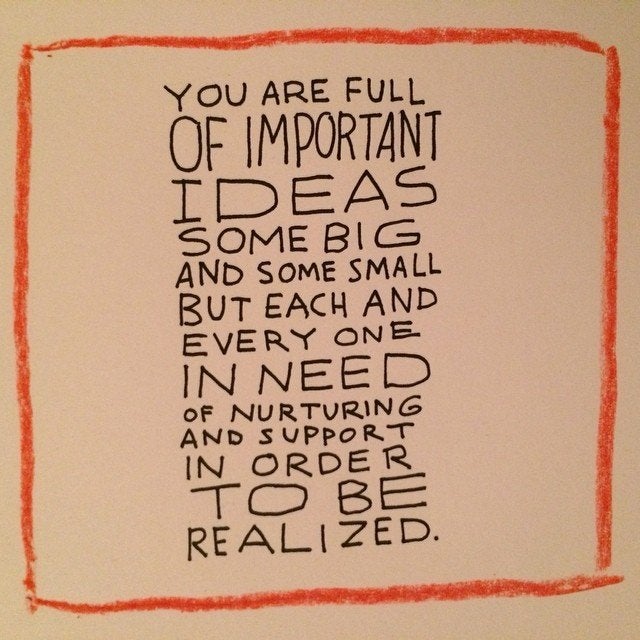 YOU ARE FULL
OF IMPORTANT
IDEAS
SOME BIG
AND SOME SMALL
BUT EACH AND
EVERY ONE
IN NEED
OF NURTURING
AND SUPPORT
IN ORDER
TO BE
REALIZED.